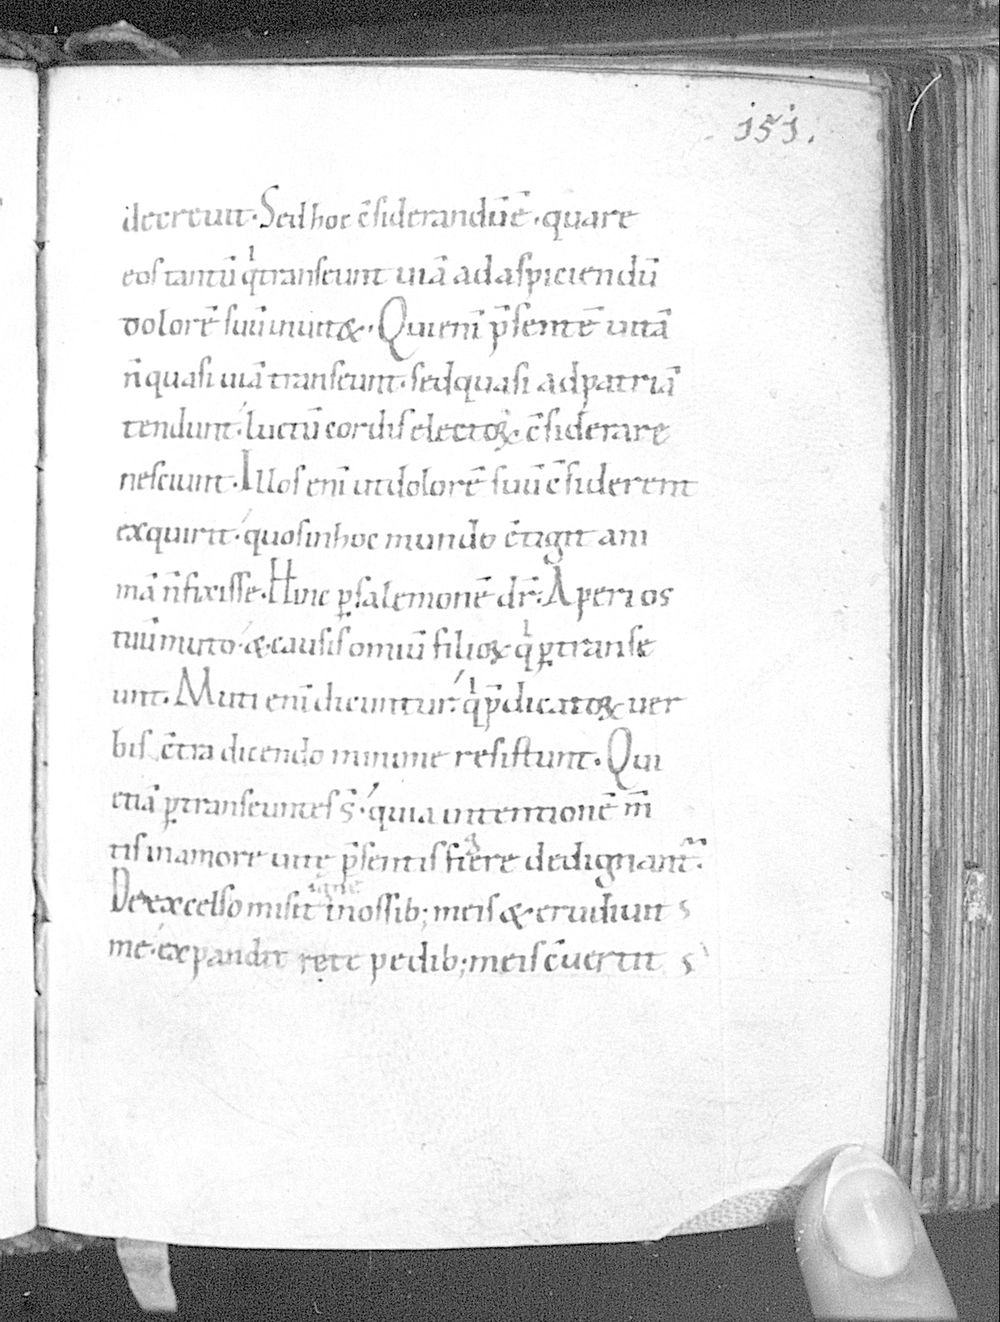 151.
decreuit. Sed hoc c̄siderandū ē. quare
eos tantū q̍ transeunt uiā ad aspiciendū
dolorē suū inuit&. Qui eni᷇ p̄sentē uitā
n̄ quasi uiā transeunt. sed quasi ad patriā
tendunt. luctū cordis electoꝝ. c̄siderare
nesciunt. Illos eni᷇ ut dolorē suū c̄siderent
exquirit. quos in hoc mundo c̄tigit ani
mā n̄ fixisse. Hinc ꝑ salemonē dr̄. Aperi os
tuū muto. & causis omniū filioꝝ q̍ ꝑtranse
unt. Muti eni᷇ dicuntur. q̍ p̄dicatoꝝ uer
bis c̄tra dicendo minime resistunt. Qui
etiā ꝑtranseuntes s̄. quia intentionē m̄
tis in amore uitę p̄sentis figere dedignant᷑.
De excelso misit igne᷇ in ossib; meis & erudiuit s
me. expandit rete pedib; meis c̄uertit s